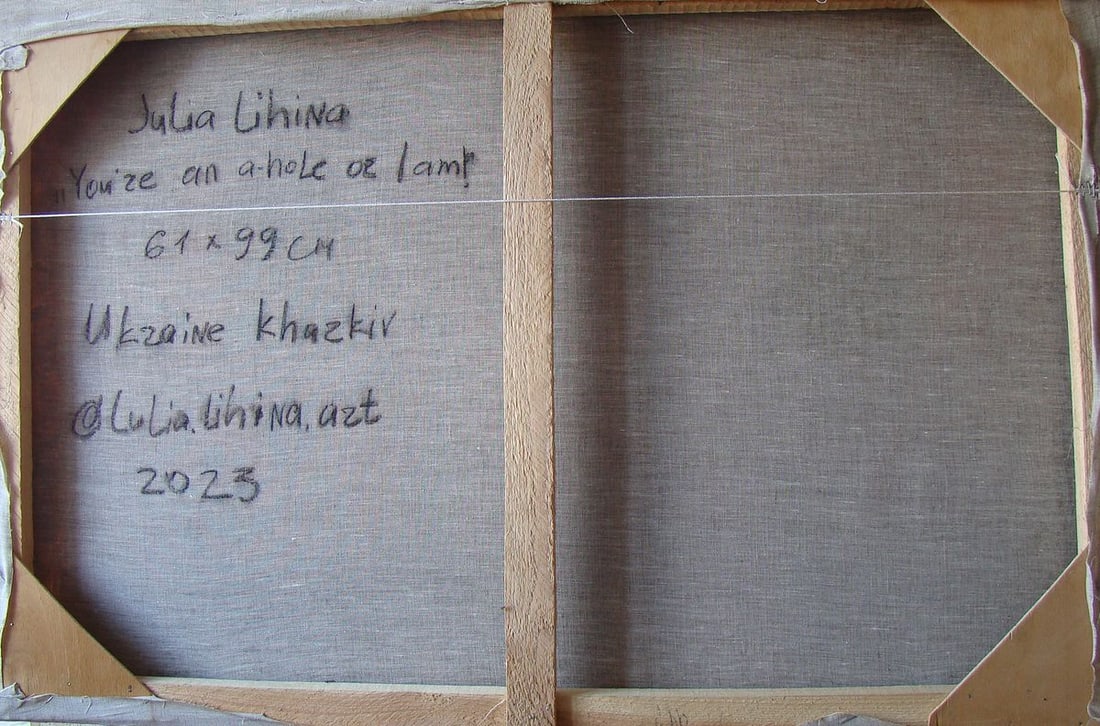 Julia Lihina
"You're an a-hole or I am!"
61 x 99 CM
Ukraine Kharkiv
@lulia.lihina.art
2023